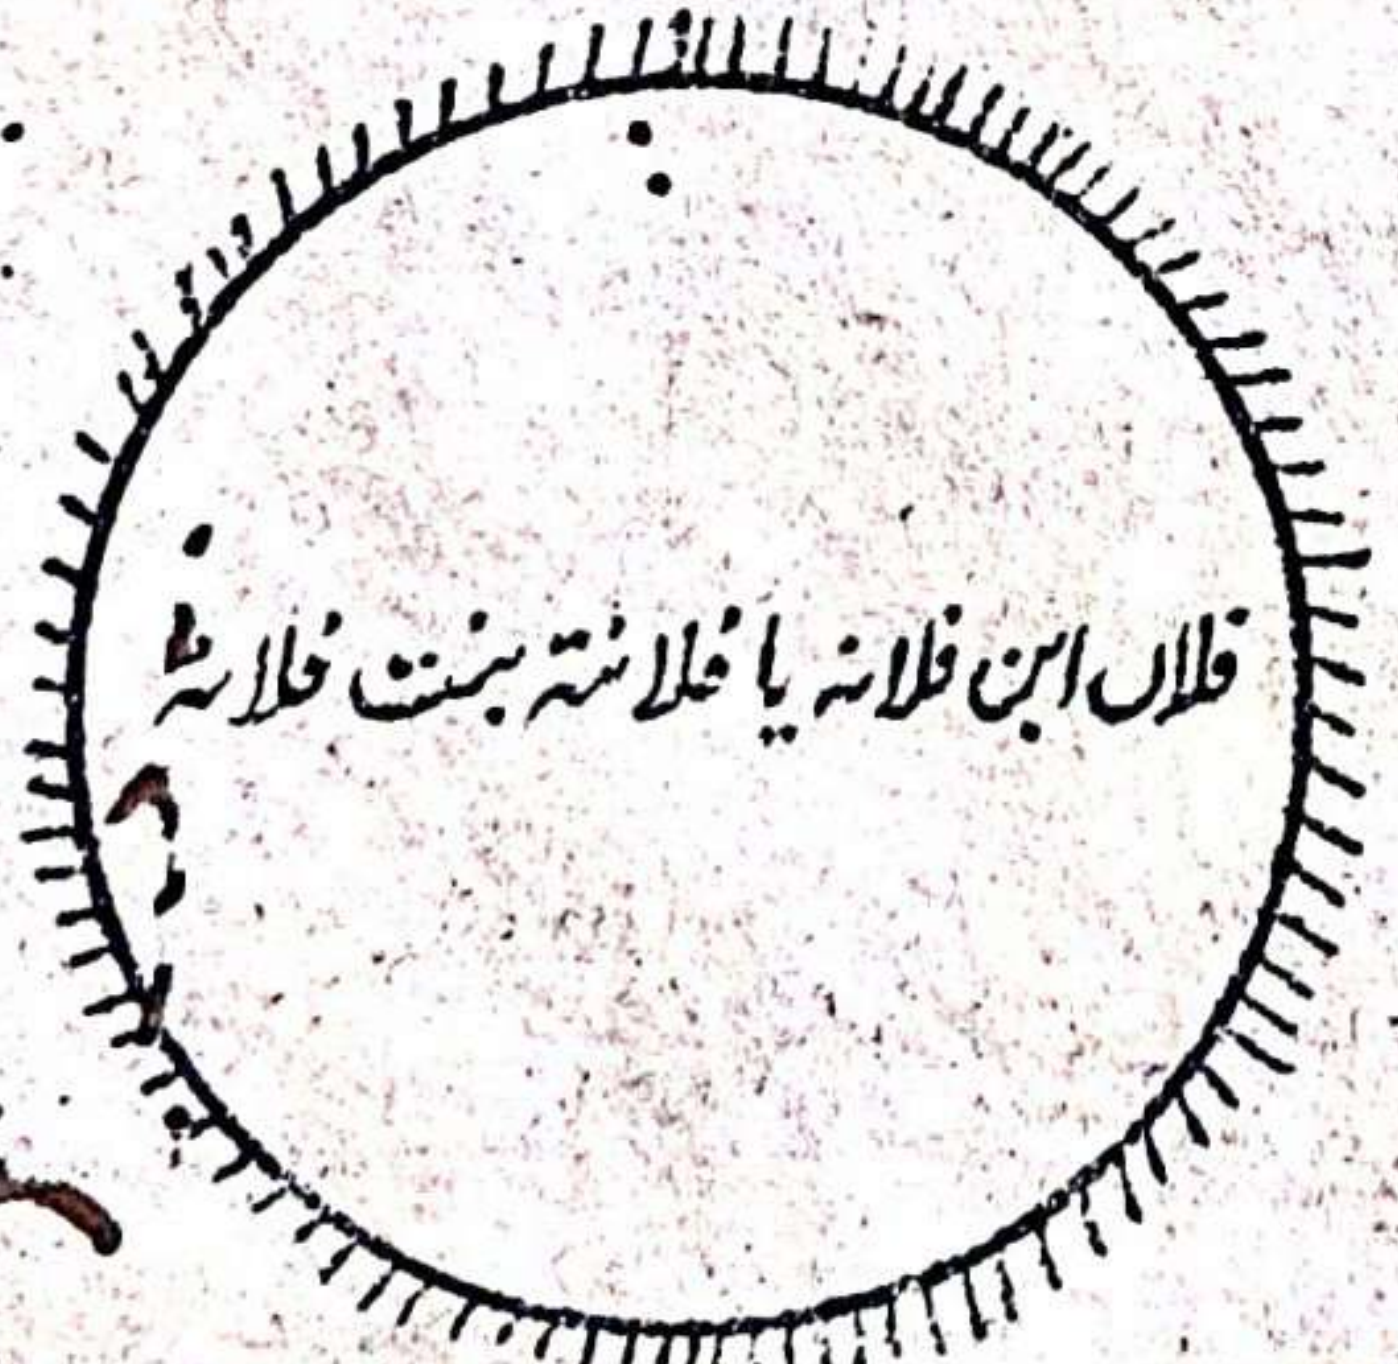 فلاں ابن فلانہ یا فلانتہ بنت فلانہ